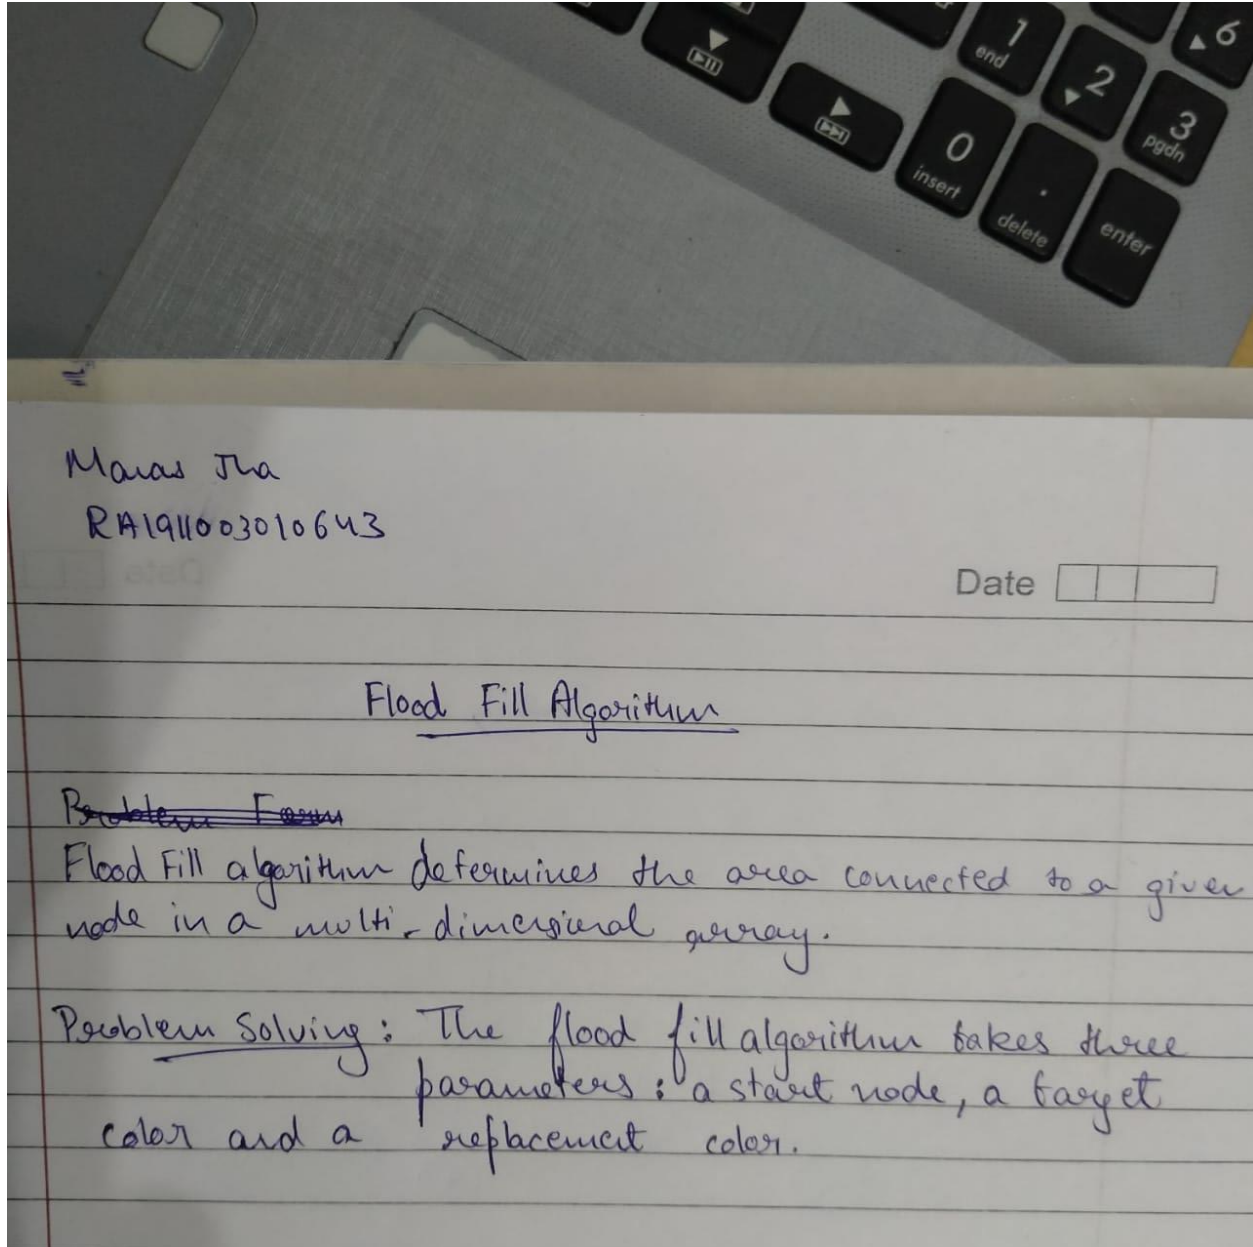 6
1
end
2
3
pgdn
0
insert
.
delete
enter
Manas Jha
RA1911003010643
Date
Flood Fill Algorithm
Problem Form
Flood Fill algorithm determines the area connected to a given
node in a multi-dimensional array.
Problem Solving: The flood fill algorithm takes three
parameters: a start node, a target
color and a replacement color.